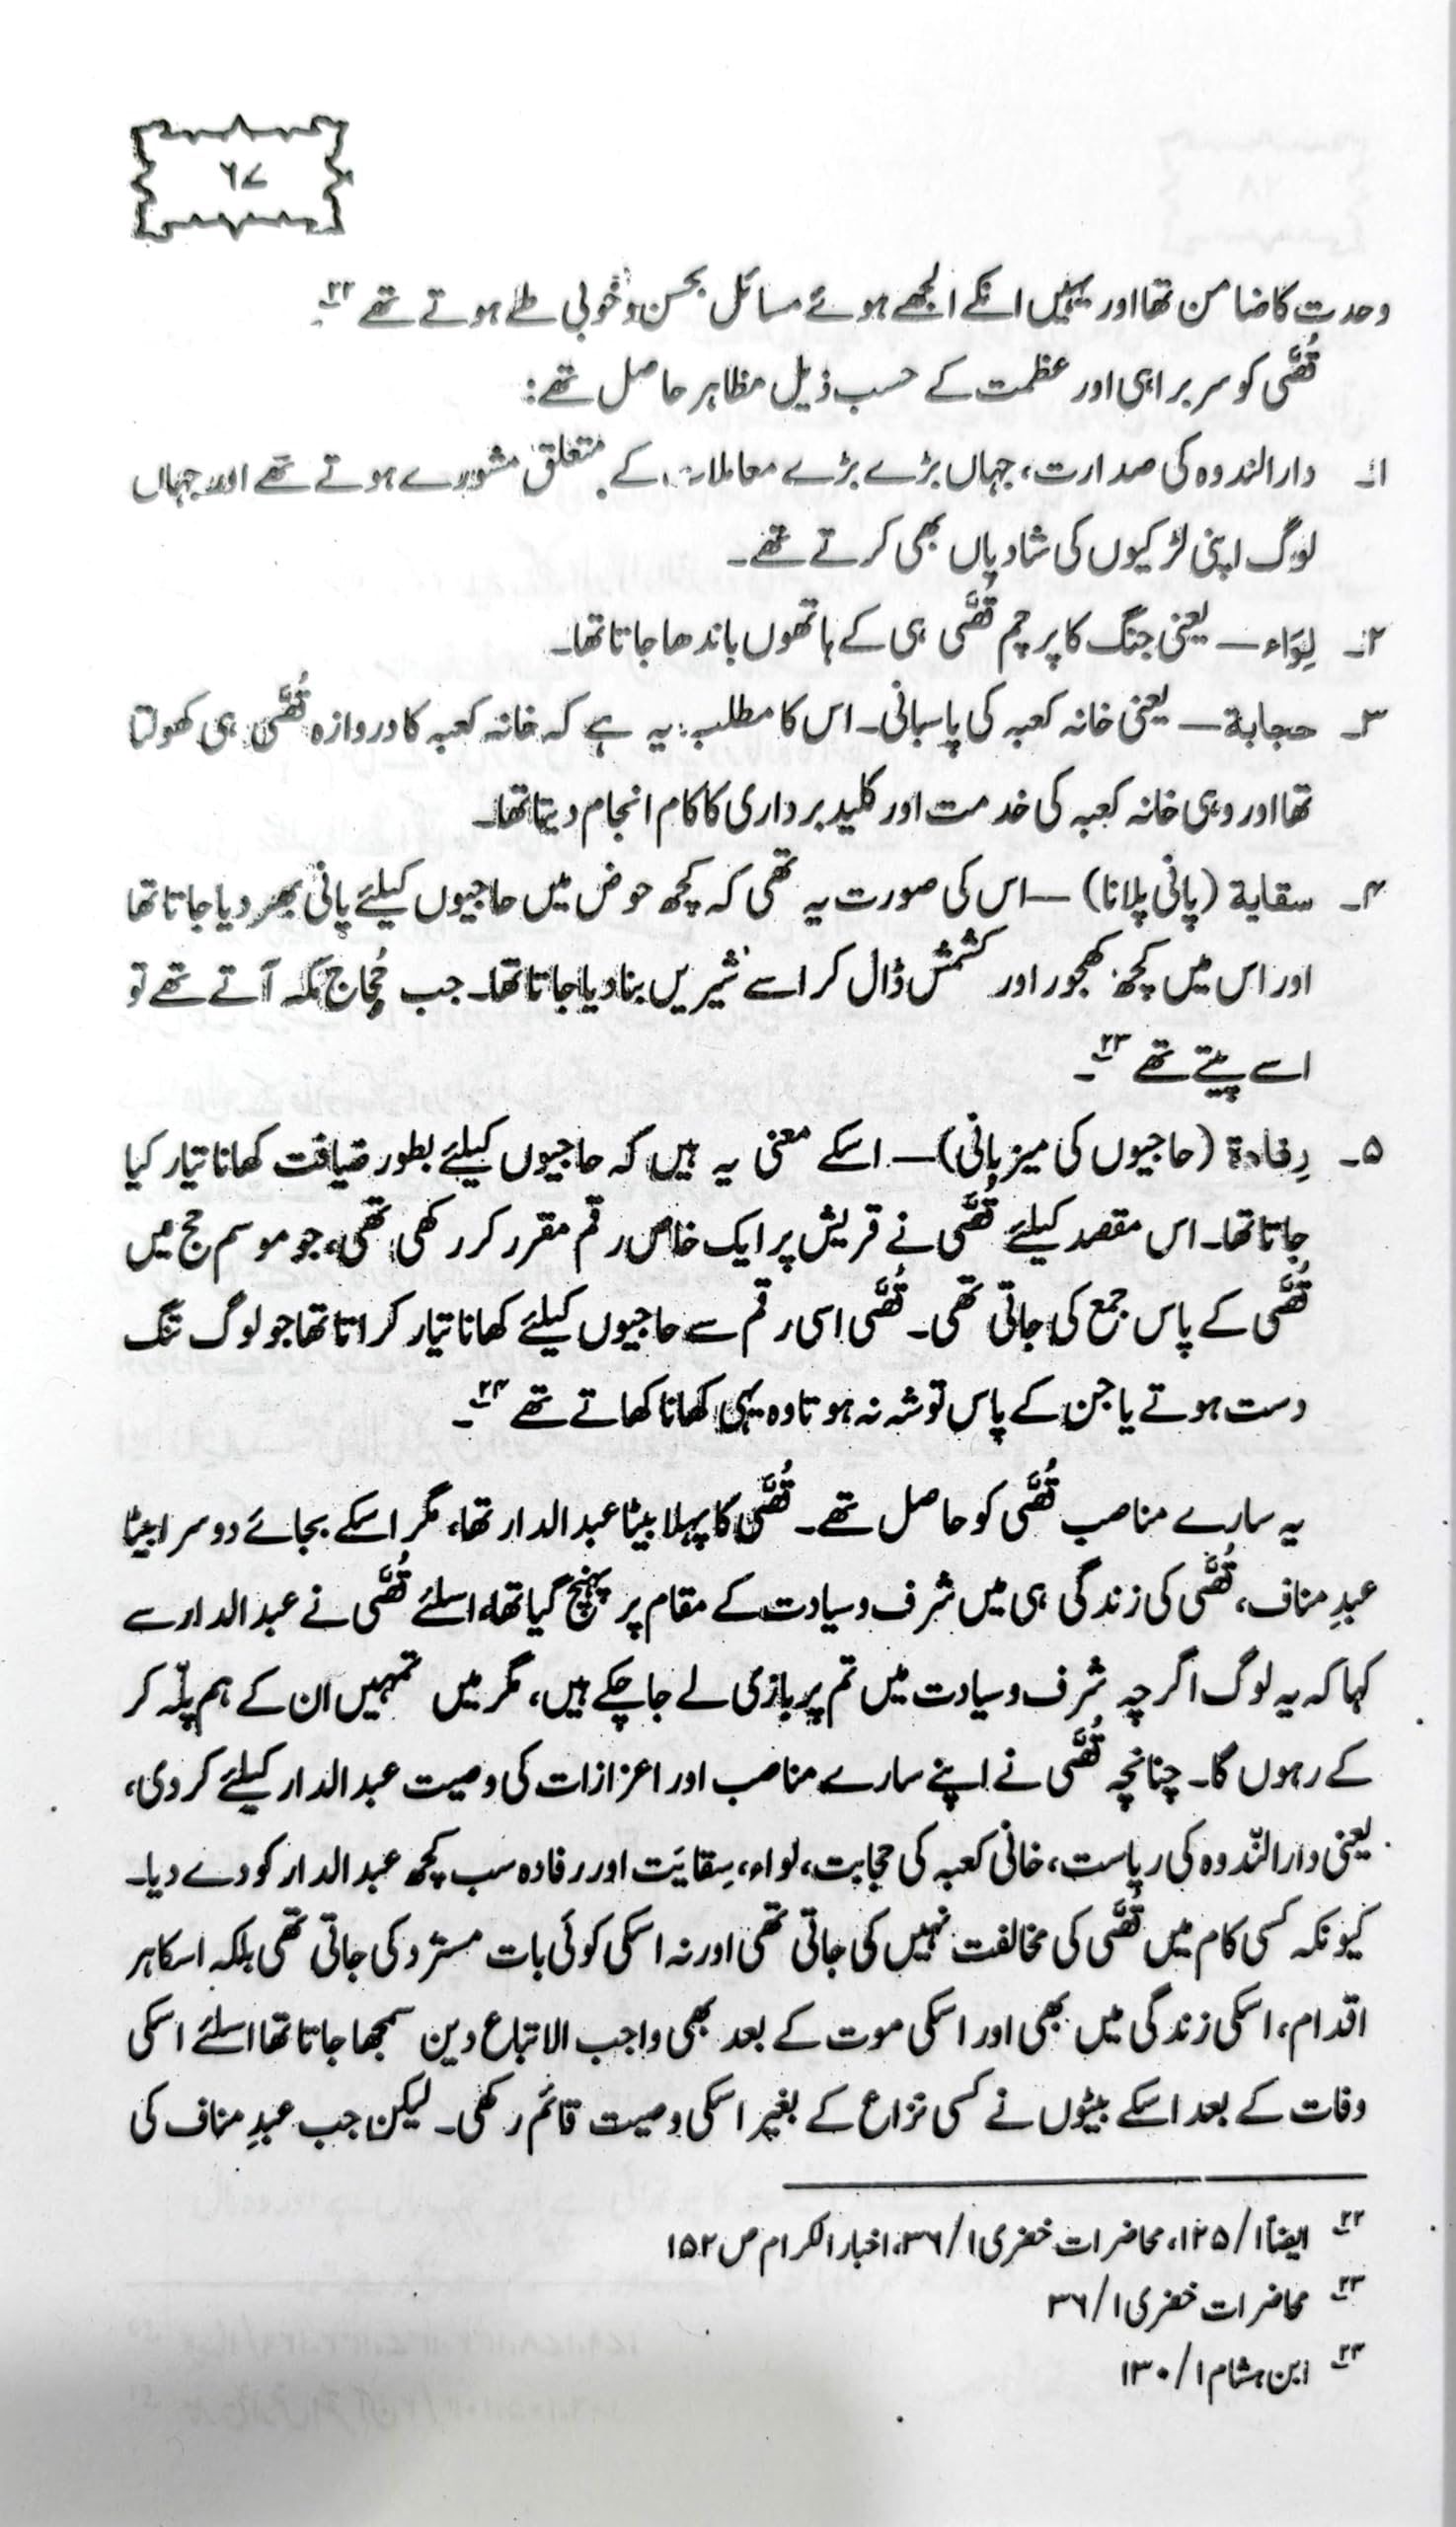 ۶۷
وحدت کا ضامن تھا اور یہیں انکے الجھے ہوئے مسائل بحسن و خوبی طے ہوتے تھے ۲۲؎۔
قُصَّی کو سربراہی اور عظمت کے حسب ذیل مظاہر حاصل تھے:
۱۔ دارالندوہ کی صدارت، جہاں بڑے بڑے معاملات کے متعلق مشورے ہوتے تھے اور جہاں
لوگ اپنی لڑکیوں کی شادیاں بھی کرتے تھے۔
۲۔ لِوَاء — یعنی جنگ کا پرچم قُصَّی ہی کے ہاتھوں باندھا جاتا تھا۔
۳۔ حجابة — یعنی خانہ کعبہ کی پاسبانی۔ اس کا مطلب یہ ہے کہ خانہ کعبہ کا دروازہ قُصَّی ہی کھولتا
تھا اور وہی خانہ کعبہ کی خدمت اور کلید برداری کا کام انجام دیتا تھا۔
۴۔ سقایة (پانی پلانا) — اس کی صورت یہ تھی کہ کچھ حوض میں حاجیوں کیلئے پانی بھر دیا جاتا تھا
اور اس میں کچھ کھجور اور کشمش ڈال کر اسے شیریں بنا دیا جاتا تھا۔ جب حُجاج مکہ آتے تھے تو
اسے پیتے تھے ۲۳؎۔
۵۔ رِفادة (حاجیوں کی میزبانی) — اسکے معنی یہ ہیں کہ حاجیوں کیلئے بطور ضیافت کھانا تیار کیا
جاتا تھا۔ اس مقصد کیلئے قُصَّی نے قریش پر ایک خاص رقم مقرر کر رکھی تھی، جو موسم حج میں
قُصَّی کے پاس جمع کی جاتی تھی۔ قُصَّی اسی رقم سے حاجیوں کیلئے کھانا تیار کراتا تھا جو لوگ تنگ
دست ہوتے یا جن کے پاس توشہ نہ ہوتا وہ یہی کھانا کھاتے تھے ۲۴؎۔
یہ سارے مناصب قُصَّی کو حاصل تھے۔ قُصَّی کا پہلا بیٹا عبد الدار تھا، مگر اسکے بجائے دوسرا بیٹا
عبدِ مناف، قُصَّی کی زندگی ہی میں شرف و سیادت کے مقام پر پہنچ گیا تھا، اسلئے قُصَّی نے عبد الدار سے
کہا کہ یہ لوگ اگرچہ شرف و سیادت میں تم پر بازی لے جا چکے ہیں، مگر میں تمہیں ان کے ہم پلّہ کر
کے رہوں گا۔ چنانچہ قُصَّی نے اپنے سارے مناصب اور اعزازات کی وصیت عبد الدار کیلئے کر دی،
یعنی دارالنّدوہ کی ریاست، خانی کعبہ کی حجابت، لواء، سِقایَت اور رفادہ سب کچھ عبد الدار کو دے دیا۔
کیونکہ کسی کام میں قُصَّی کی مخالفت نہیں کی جاتی تھی اور نہ اسکی کوئی بات مسترد کی جاتی تھی بلکہ اسکا ہر
اقدام، اسکی زندگی میں بھی اور اسکی موت کے بعد بھی واجب الاتباع دین سمجھا جاتا تھا اسلئے اسکی
وفات کے بعد اسکے بیٹوں نے کسی نزاع کے بغیر اسکی وصیت قائم رکھی۔ لیکن جب عبدِ مناف کی
۲۲؎ ایضاً ۱/۱۲۵، محاضرات خضری ۱/۳۶، اخبار الکرام ص ۱۵۲
۲۳؎ محاضرات خضری ۱/۳۶
۲۴؎ ابن ہشام ۱/۱۳۰